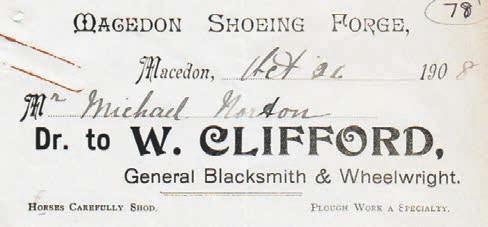 78
Macedon Shoeing Forge,
Macedon, Oct 26 1908
Mr Michael Norton
Dr. to W. CLIFFORD,
General Blacksmith & Wheelwright.
Horses Carefully Shod. Plough Work a Specialty.